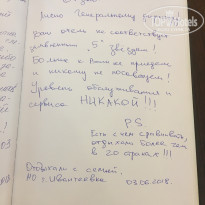 Ваш отель не соответствует
заявленным "5" звездам!
Больше к Вам не приедем
и никому не посоветуем!
Уровень обслуживания и
сервиса НИКАКОЙ!!!
PS
Есть с чем сравнивать,
отдыхали более чем
в 20 странах!!!
Отдыхали с семьей,
МО г. Ивантеевка
03.06.2018.